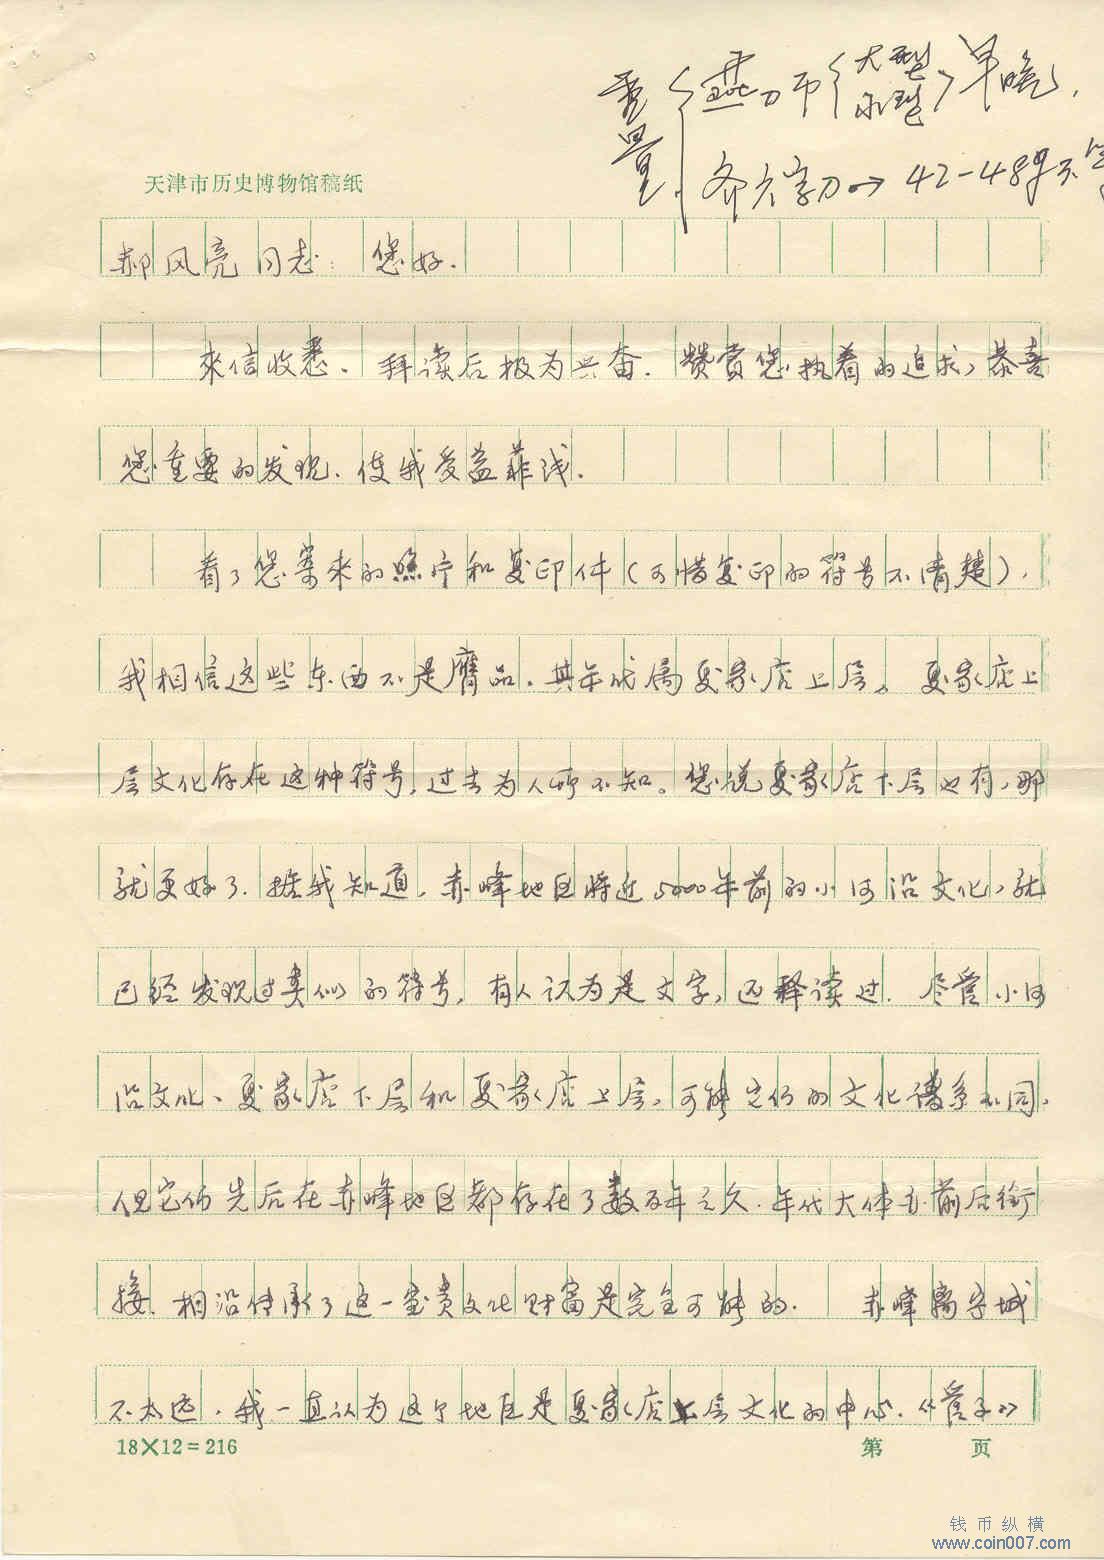 重量 燕刀币 大型 小型 早晚,
齐六字刀→42-48g不等
天津市历史博物馆稿纸
郝风亮同志: 您好.
來信收悉、拜读后极为兴奋. 赞赏您执着的追求,恭喜
您重要的发现. 使我受益菲浅.
看了您寄來的照片和复印件(可惜复印的符号不清楚),
我相信这些东西不是赝品. 其年代属夏家店上层。夏家店上
层文化存在这种符号,过去为人所不知。您说夏家店下层也有,那
就更好了. 据我知道,赤峰地区将近5000年前的小河沿文化,就
已经发现过类似的符号,有人认为是文字,还释读过. 尽管小河
沿文化、夏家店下层和夏家店上层,可能它们的文化谱系不同,
但它们先后在赤峰地区都存在了数百年之久. 年代大体也前后衔
接. 相沿传承了这一宝贵文化财富是完全可能的. 赤峰离宁城
不太远. 我一直认为这个地区是夏家店上层文化的中心.《管子》
18×12=216
第 页
钱币纵横
www.coin007.com